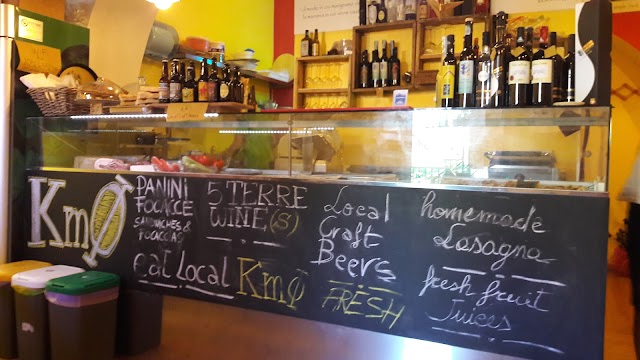 KmØ
PANINI
FOCACCE
SANDWICHES &
FOCACCIAS
eat Local
5 TERRE
WINE(S)
KmØ
Local
Craft
Beers
FRESH
homemade
Lasagna
fresh fruit
Juices